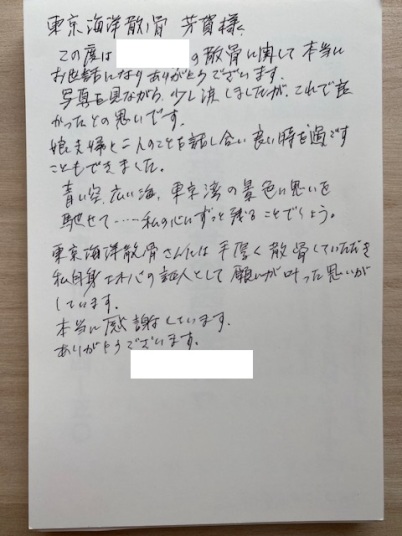 東京海洋散骨 芳賀様、
この度は の散骨に関して本当に
お世話になりありがとうございます。
写真を見ながら、少し涙しましたが、これで良
かったとの思いです。
娘夫婦と二人のことを話し合い良い時を過ごす
こともできました。
青い空、広い海、東京湾の景色に思いを
馳せて……私の心にずっと残ることでしょう。
東京海洋散骨さんには手厚く散骨していただき
私自身 の証人として願いが叶った思いが
しています。
本当に感謝しています。
ありがとうございます。